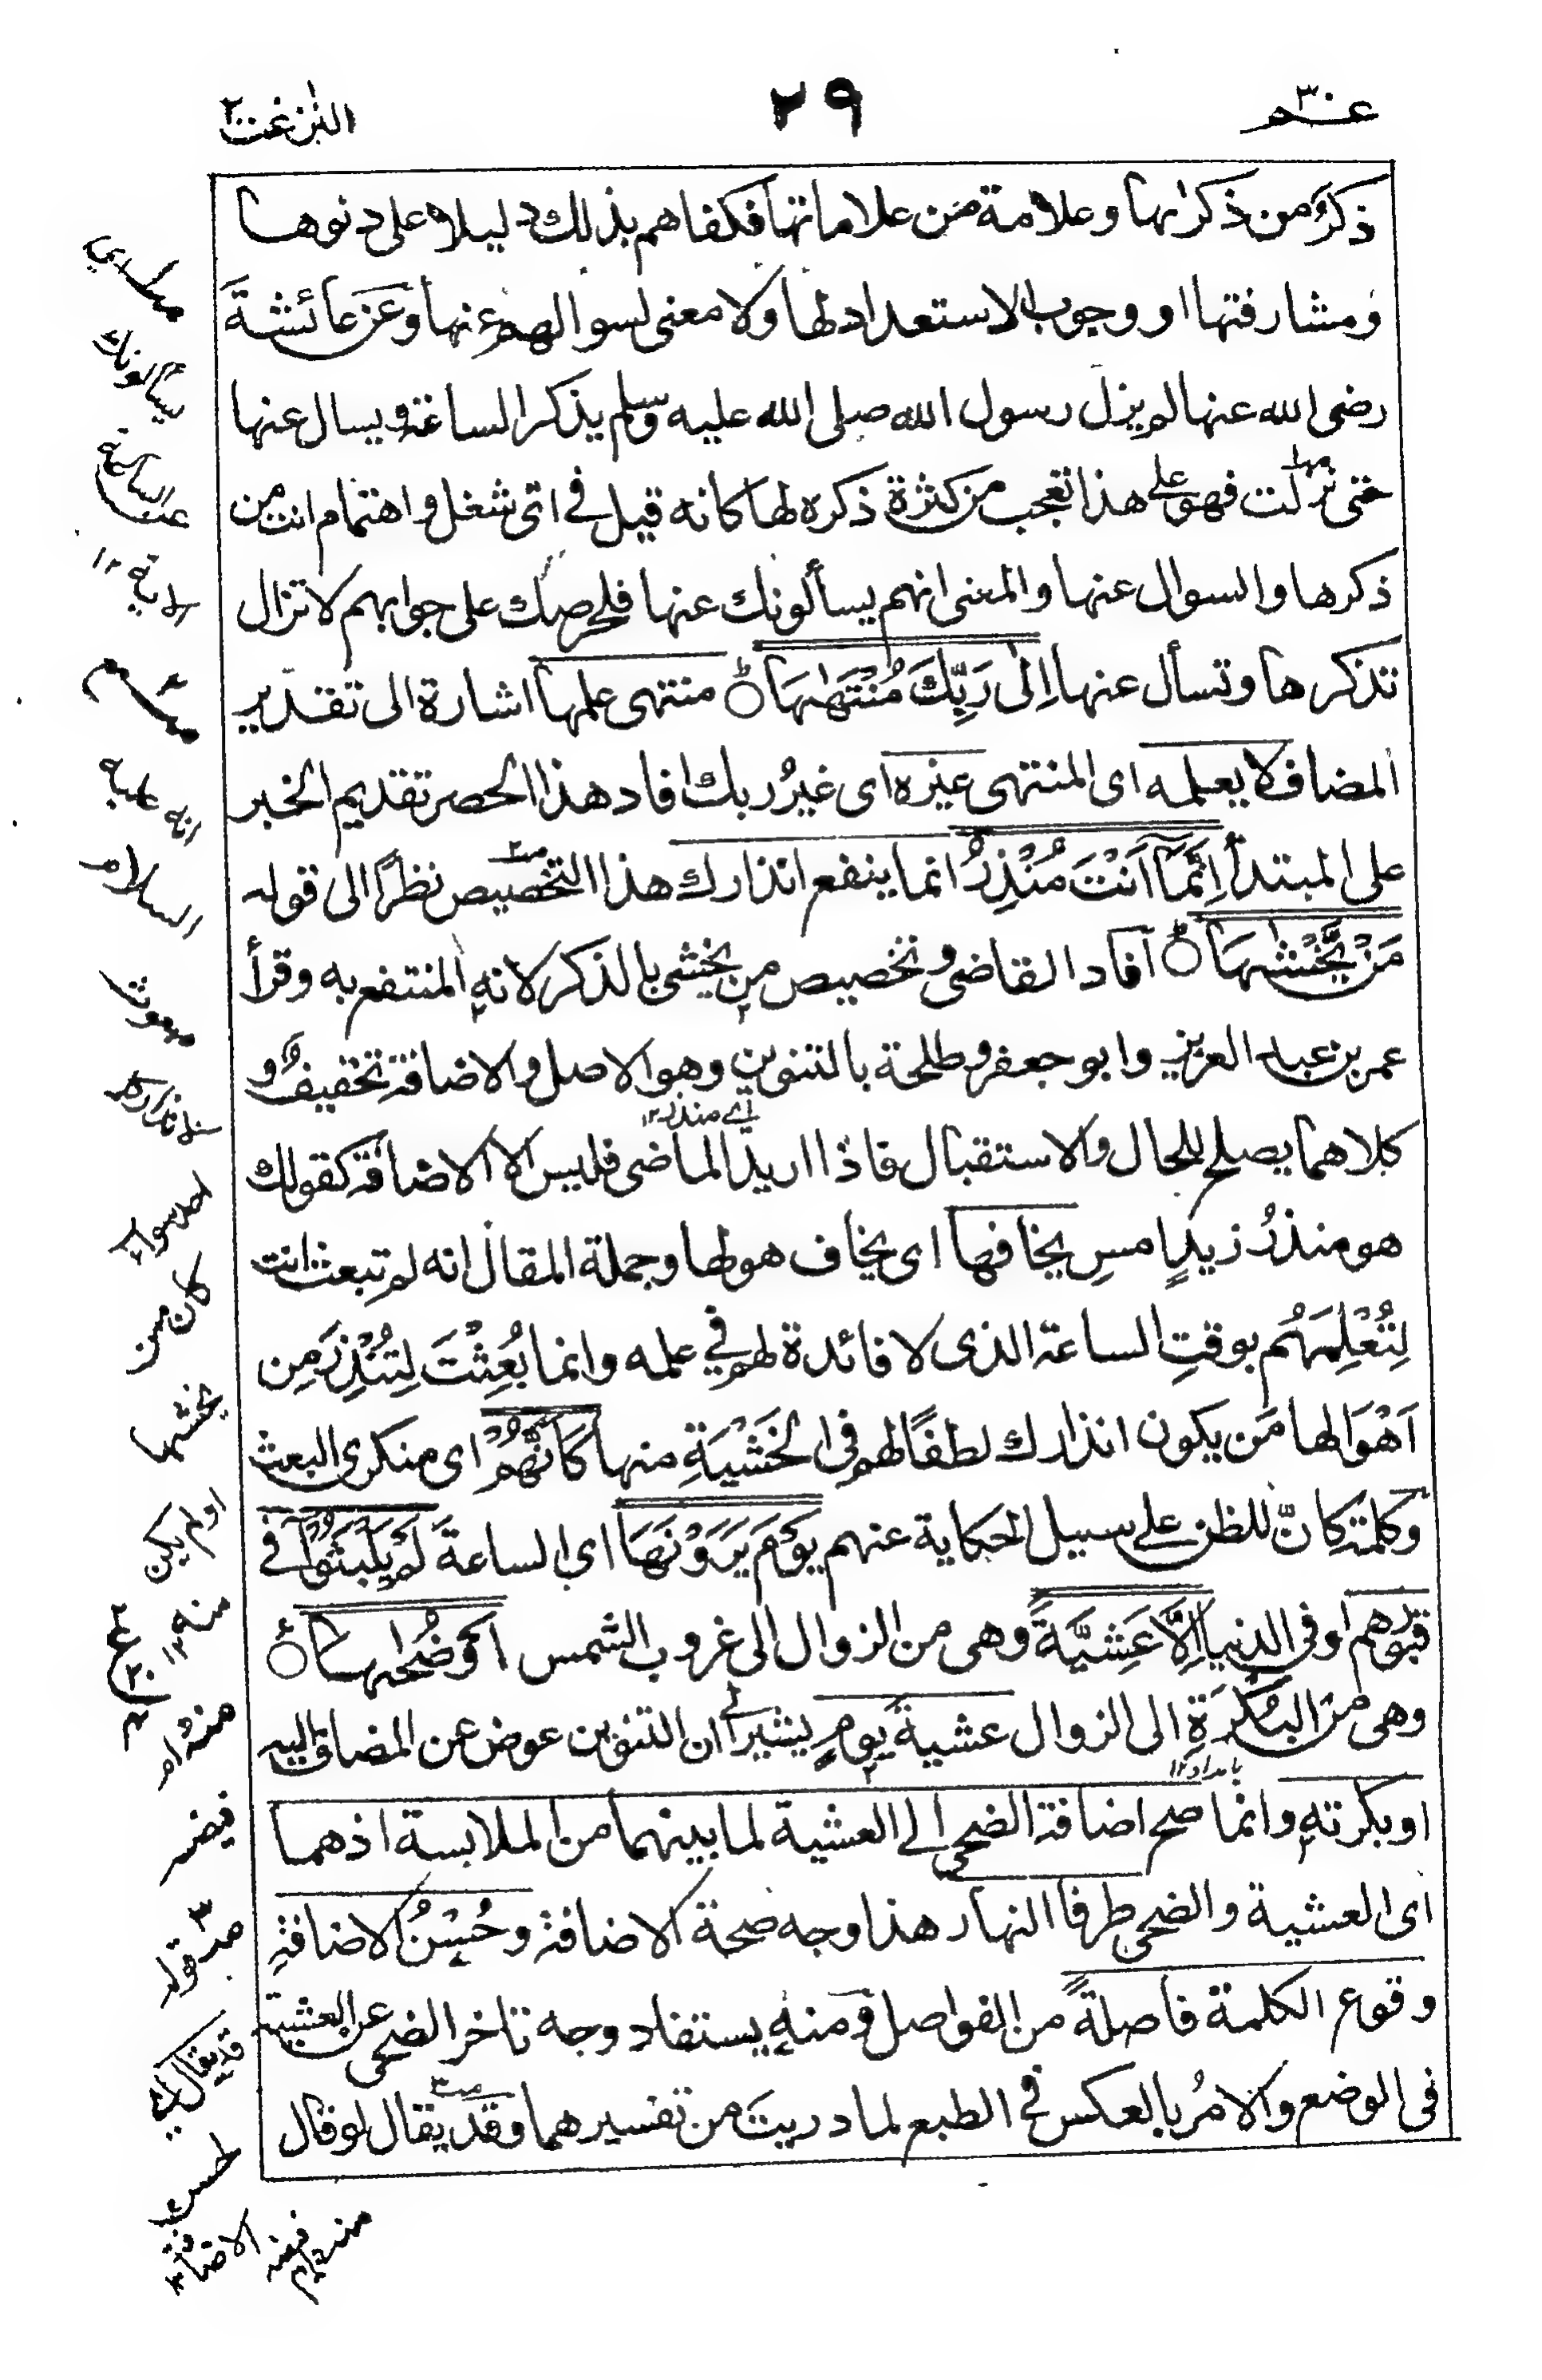 عم ٣٠
٢٩
النزعت
ذكرٌ من ذكراها وعلامة من علاماتها فكفاهم بذلك دليلا على دنوها
ومشارفتها او وجوب الاستعداد لها ولا معنى لسوالهم عنها وعن عائشة
رضى الله عنها لم يزل رسول الله صلى الله عليه وسلم يذكر الساعة ويسال عنها
حتى نزلت فهو على هذا تعجب من كثرة ذكره لها كانه قيل في اى شغل واهتمام انت من
ذكرها والسوال عنها والمعنى انهم يسألونك عنها فلحرصك على جوابهم لا تزال
تذكرها وتسأل عنها اِلٰى رَبِّكَ مُنْتَهٰىهَا ؕ منتهى علمها اشارة الى تقدير
المضاف لا يعلمه اى المنتهى غيره اى غيرُ ربك افاد هذا الحصر تقديم الخبر
على المبتدأ اِنَّمَآ اَنْتَ مُنْذِرُ انما ينفع انذارك هذا التخصيص نظرًا الى قوله
مَنْ يَّخْشٰىهَا ؕ افاد القاضى وتخصيص من يخشى بالذكر لانه المنتفع به وقرأ
عمر بن عبد العزيز وابو جعفر وطلحة بالتنوين وهو الاصل والاضافة تخفيفٌ و
كلاهما يصلح للحال والاستقبال فاذا اريد الماضى فليس الا الاضافة كقولك
اى منذر١٢
هو منذرُ زيدٍ امسِ يخافها اى يخاف هولها وجملة المقال انه لم تبعث انت
لِتُعْلِمَهُم بوقتِ الساعة الذى لا فائدة لهم في علمه وانما بُعِثْتَ لِتُنْذِرَ مِن
اَهْوَالها مَن يكون انذارك لطفًا لهم فى الخَشْيَةِ منها كَاَنَّهُمْ اى منكرى البعث
وكلمة كانّ للظن على سبيل الحكاية عنهم يَوْمَ يَرَوْنَهَا اى الساعةَ لَمْ يَلْبَثُوْٓا فى
قبورهم او فى الدنيا اِلَّا عَشِيَّةً وهى من الزوال الى غروب الشمس اَوْ ضُحٰىهَا ؕ
وهى من البُكْرَةِ الى الزوال عشيةَ يومٍ يشير الى ان التنوين عوض عن المضاف اليه
بامداد١٢
او بكرته وانما صح اضافة الضحى الى العشية لما بينهما من الملابسة اذ هما
اى العشية والضحى طرفا النهار هذا وجه صحة الاضافة وحُسْنُ الاضافةِ
وقوع الكلمة فاصلةً من الفواصل ومنه يستفاد وجه تاخر الضحى عن العشية
فى الوضع والامرُ بالعكس في الطبع لما دريت من تفسيرهما وقد يقال لو قال
يسألونك
عن الساعة
الاية ١٢
انه عليه
السلام
مبعوث
كان من
يخشها
اولم يكن
منه ١٢
قوله
قد يقال
الاضافة